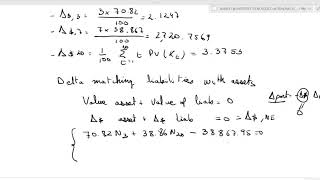 - Δ$,3 = 3 × 70.82 / 100 = 2.1247
- Δ$, = 7 × 38.867 / 100 = 2720.7569
- Δ$,20 = 1/100 Σ t PV(Kt) = 3.3755
Delta matching liabilities with assets
Value asset + value of liab = 0
Δport = Δ$
0
Δ$ asset + Δ$ liab = 0 = Δ$,NE
70.82 N3 + 38.86 N20 - 38 867.95 = 0